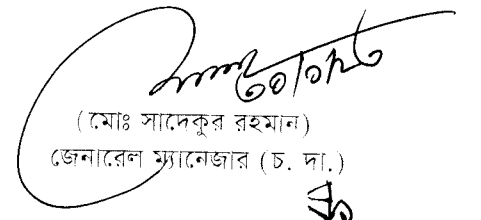 (মোঃ সাদেকুর রহমান)
জেনারেল ম্যানেজার (চ. দা.)